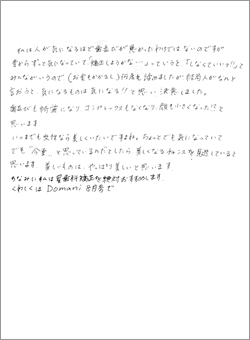 私は人が気になるほど歯並びが悪かったわけではないのですが
昔からずっと気になっていて「矯正しようかな…」っていうと「しなくていいよ!!」って
みんながいうので(お金もかかるし)何度も諦めましたが他人がなんと
言おうと、気になるものは気になる!!と思い決意しました。
歯並びも綺麗になり、コンプレックスもなくなり、顔も小さくなった!?と
思います
いつまでも女性なら美しくいたいですよね。ちょっとでも気になっていて
でも"今更…"と思っているのだとしたら美しくなるチャンスを見逃していると
思います。美しいものは、やっぱり美しいと思います
ちなみに私は審美歯科矯正を絶対おすすめします
くわしくは Domani 8月号で